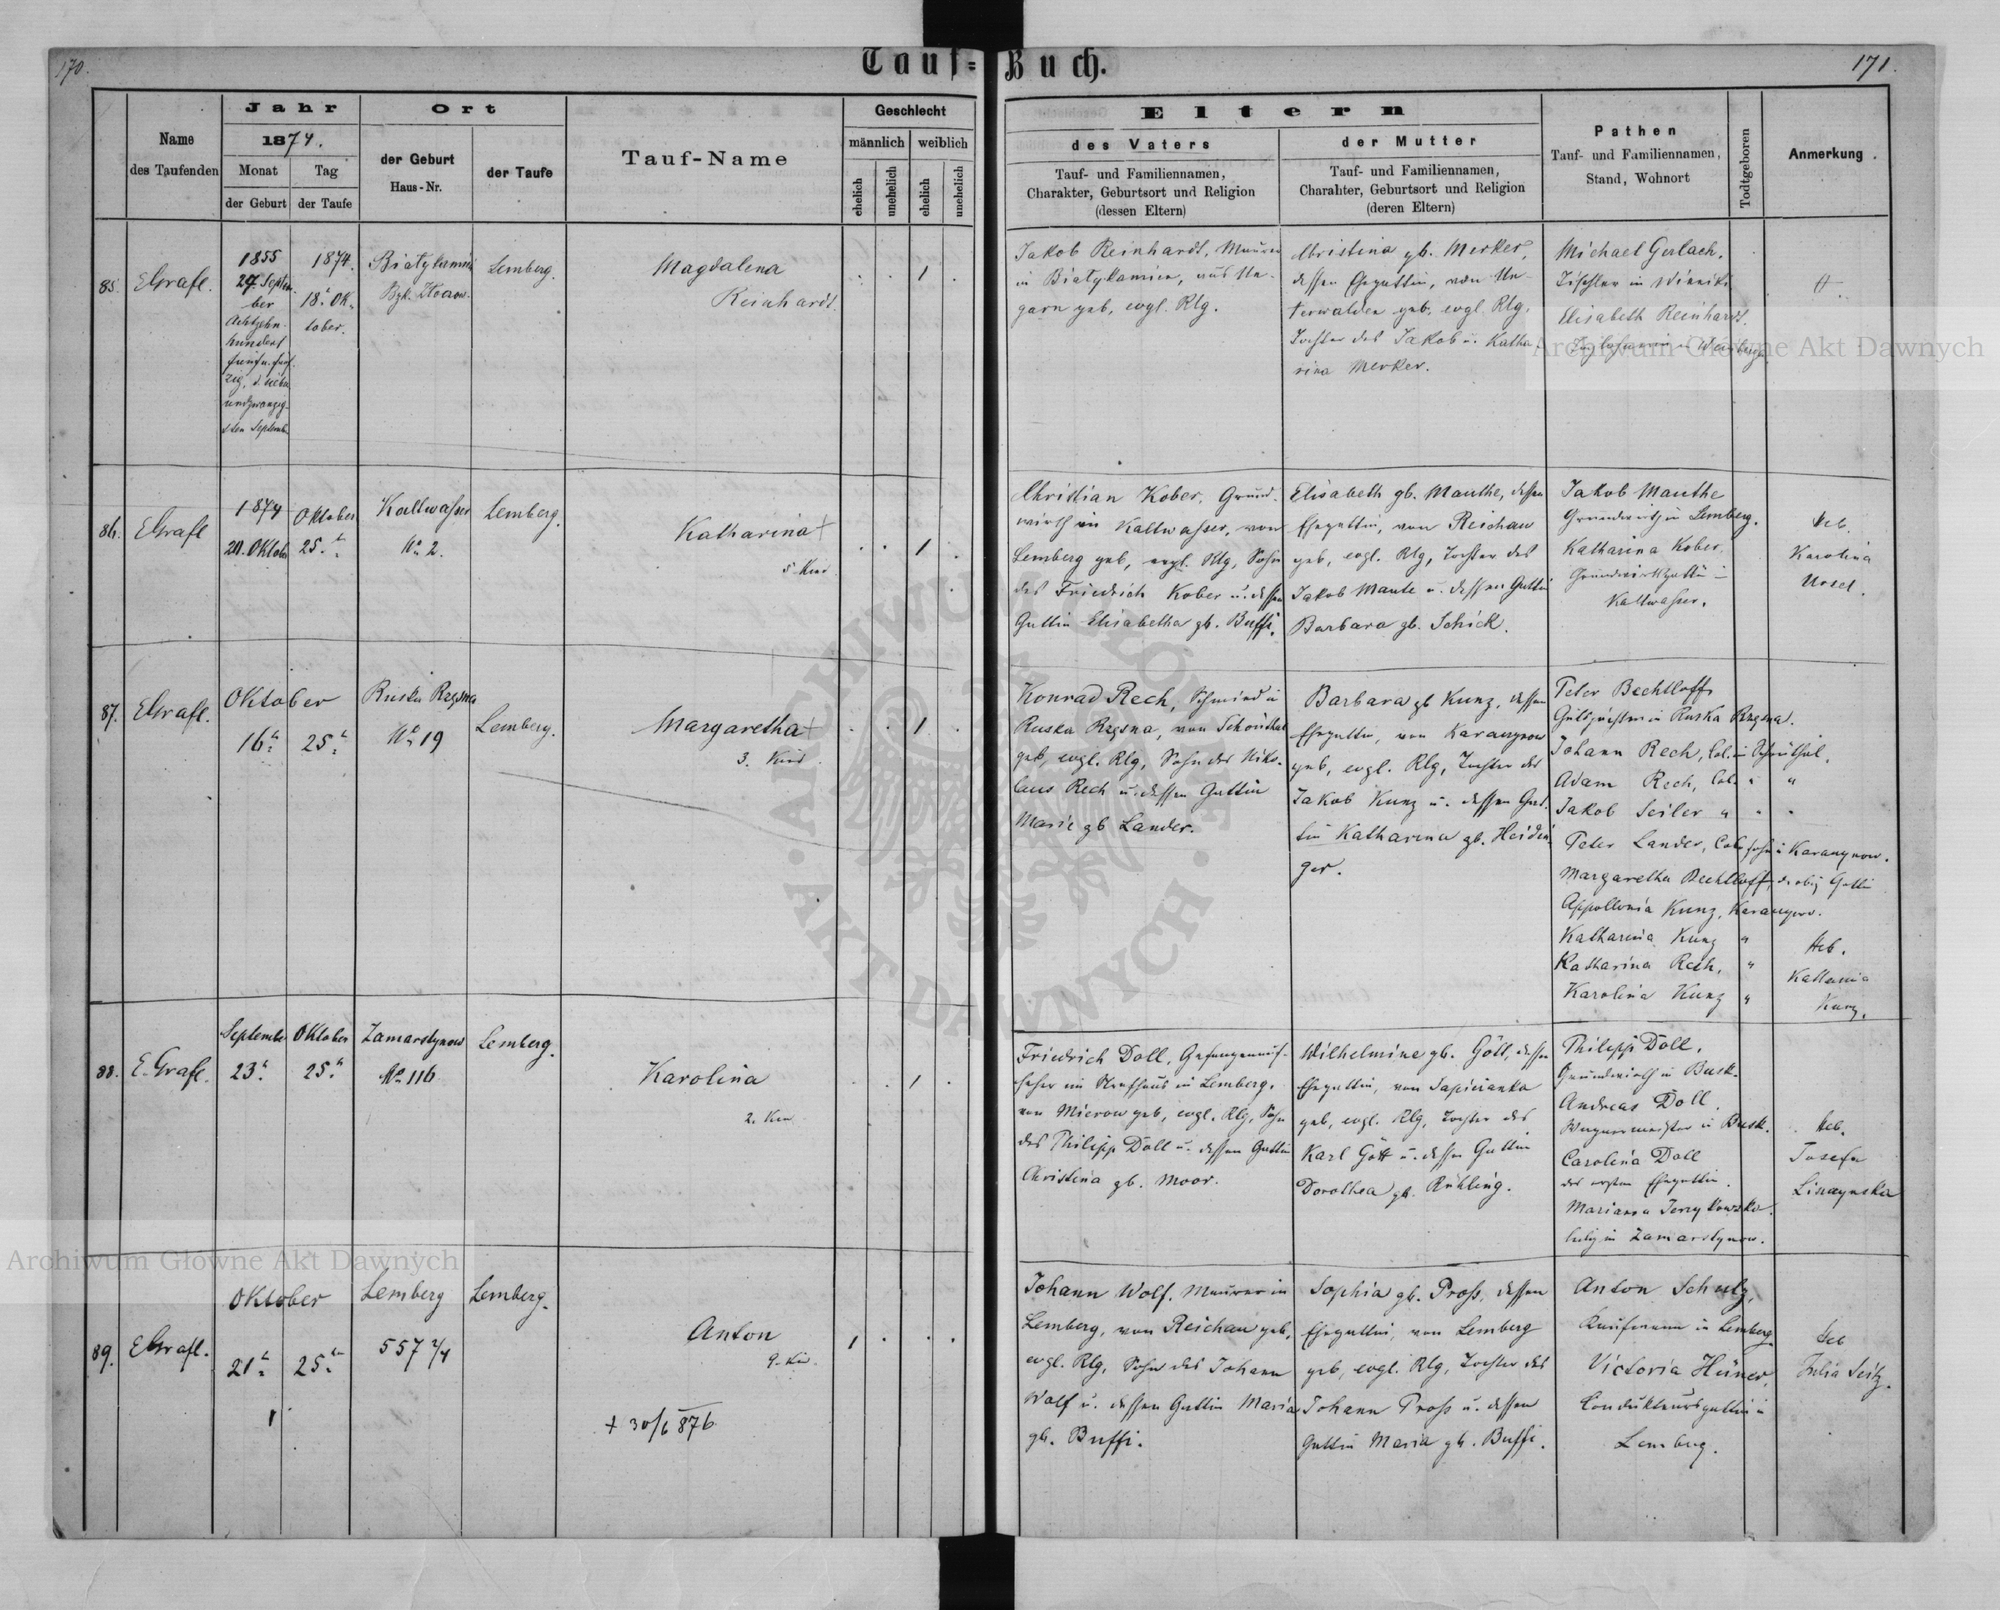 170.
Tauf=Buch.
171.
Name
des Taufenden
Jahr
1874.
Monat
der Geburt
Tag
der Taufe
Ort
der Geburt
Haus-Nr.
der Taufe
Tauf-Name
Geschlecht
männlich
weiblich
ehelich
unehelich
ehelich
unehelich
Eltern
des Vaters
Tauf- und Familiennamen,
Charakter, Geburtsort und Religion
(dessen Eltern)
der Mutter
Tauf- und Familiennamen,
Charakter, Geburtsort und Religion
(deren Eltern)
Pathen
Tauf- und Familiennamen,
Stand, Wohnort
Todtgeboren
Anmerkung.
85.
EGrafl.
1855
27. Septem-
ber
Achtzehn-
hundert
fünf u. fünf-
zig, d. sieben
undzwanzig-
sten September
1874.
18. Ok-
tober.
Lemberg.
Magdalena
Reinhardt
1
Jakob Reinhardt, Maurer
in Biatykamien, aus Un-
garn geb, evgl. Rlg.
Christina gb. Merker,
dessen Ehegattin, von Un-
terwalden geb, evgl. Rlg,
Tochter des Jakob u. Katha
rina Merker.
Michael Gerlach,
Tischler in Winniki
Elisabeth Reinhardt
86.
EGrafl
1874
Oktober
25.
Kaltwasser
No 2.
Lemberg.
Katharina +
5. Kind
1
Christian Kober, Grund-
wirth in Kaltwasser, von
Lemberg geb, evgl. Rlg, Sohn
des Friedrich Kober u. dessen
Gattin Elisabetha gb. Buffi.
Elisabeth gb. Mauthe, dessen
Ehegattin, von Reichau
geb, evgl. Rlg, Tochter des
Jakob Maute u. dessen Gattin
Barbara gb. Schick.
Jakob Mauthe
Grundwirth in Lemberg.
Katharina Kober,
Grundwirthsgattin in
Kaltwasser.
Heb.
Karolina
Ursel.
87.
EGrafl.
Oktober
16.
25.
No 19
Lemberg.
Margaretha +
3. Kind
1
Konrad Rech, Schmied in
Ruska Rzęsna, von Schönthal
geb, evgl. Rlg, Sohn des Niko-
laus Rech u. dessen Gattin
Marie gb Lander.
Barbara gb Kunz, dessen
Ehegattin, von
geb, evgl. Rlg, Tochter des
Jakob Kunz u. dessen Gat-
tin Katharina gb. Heidin
ger.
Peter Bechtloff
Gutspächter in Ruska Rzęsna.
Johann Rech, Col. in Schönthal.
Adam Rech, Col. " "
Jakob Seiler " " "
Peter Lander,
Margaretha Bechtloff, d. obig Gattin
Appollonia Kunz,
Katharina Kunz "
Katharina Rech, "
Karolina Kunz "
Heb.
Katharina
Kunz.
88.
E. Grafl.
September
23.
Oktober
25.
Zamarstynow
No 116
Lemberg.
Karolina
2. Kind
1
Friedrich Doll,
im Strafhaus in Lemberg,
von Mierow geb, evgl. Rlg, Sohn
des Philipp Doll u. dessen Gattin
Christina gb. Moor.
Wilhelmine gb. Gött, dessen
Ehegattin, von Sapiezanka
geb, evgl. Rlg, Tochter des
Karl Gött u. dessen Gattin
Dorothea gb. Rühling.
Philipp Doll,
Grundwirth in Busk.
Andreas Doll,
Wagnermeister in Busk.
Carolina Doll
des ersten Ehegattin.
Marianna
ledig in Zamarstynow.
Heb.
Josefa
89.
EGrafl.
Oktober
21.
25.
Lemberg
557 2/4
Lemberg.
Anton
9. Kind.
+ 30/6 876
1
Johann Wolf, Maurer in
Lemberg, von Reichau geb,
evgl. Rlg, Sohn des Johann
Wolf u. dessen Gattin Maria
gb. Buffi.
Sophia gb. Pross, dessen
Ehegattin, von Lemberg
geb, evgl. Rlg, Tochter des
Johann Pross u. dessen
Gattin Maria gb. Buffi.
Anton Schulz,
Kaufmann in Lemberg
Victoria Hüner,
Condukteursgattin in
Lemberg.
Heb
Julia Seitz.
Archiwum Główne Akt Dawnych
Archiwum Główne Akt Dawnych
ARCHIWUM GŁÓWNE · AKT DAWNYCH ·